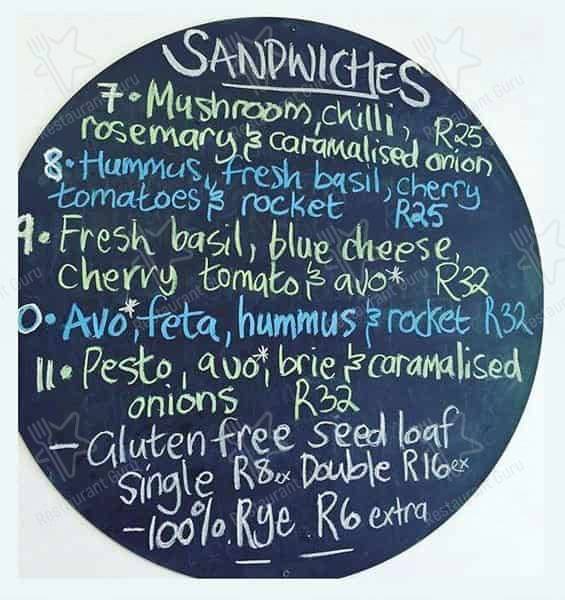 SANDWICHES
7 • Mushroom, chilli, R25
rosemary & caramalised onion
8 • Hummus, fresh basil, cherry
tomatoes & rocket R25
9 • Fresh basil, blue cheese,
cherry tomato & avo* R32
0 • Avo*, feta, hummus & rocket R32
11 • Pesto, avo*, brie & caramalised
onions R32
- Gluten free seed loaf
single R8 ex Double R16 ex
- 100% Rye R6 extra
Restaurant Guru